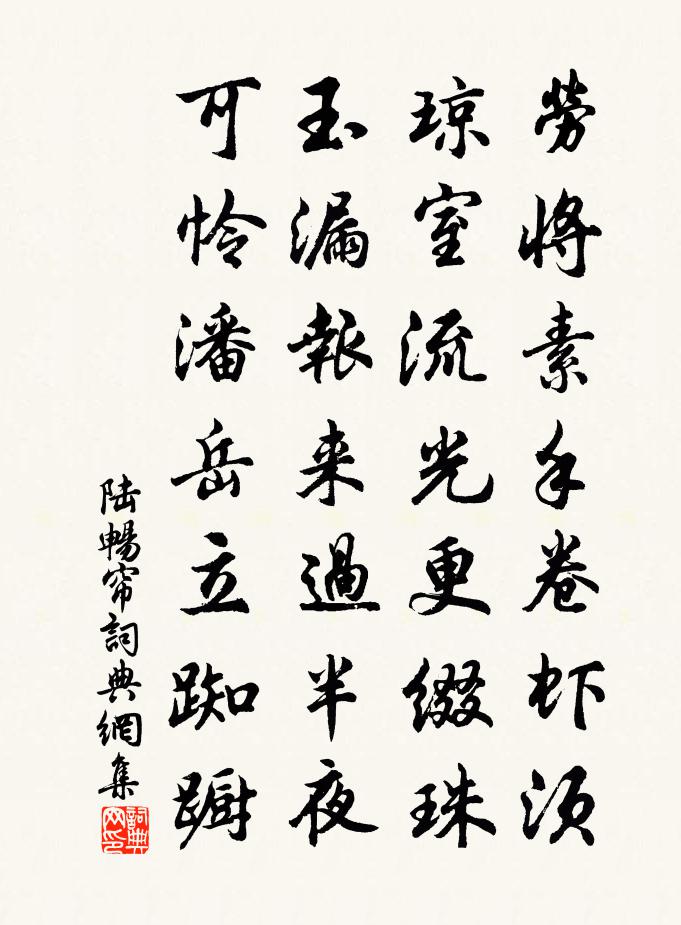 劳将素手卷虾须
琼室流光更缀珠
玉漏報来過半夜
可怜潘岳立踟蹰
陆暢帘詞典網集
詞典网印